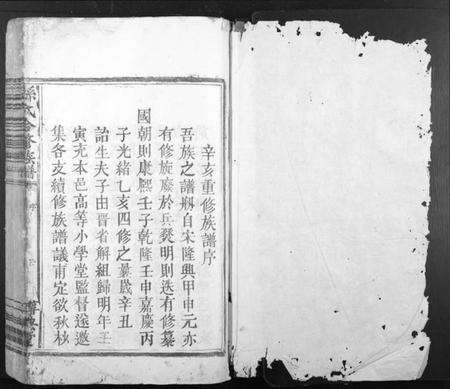 辛亥重修族譜序
吾族之譜刱自宋隆興甲申元亦
有修旋廢於兵燹明則迭有修纂
國朝則康熙壬子乾隆壬申嘉慶丙
子光緒乙亥四修之曩歲辛丑
詒生夫子由晉省解組歸明年壬
寅充本邑高等小學堂監督遂邀
集各支續修族譜議甫定欲秋枌
氏合修族譜